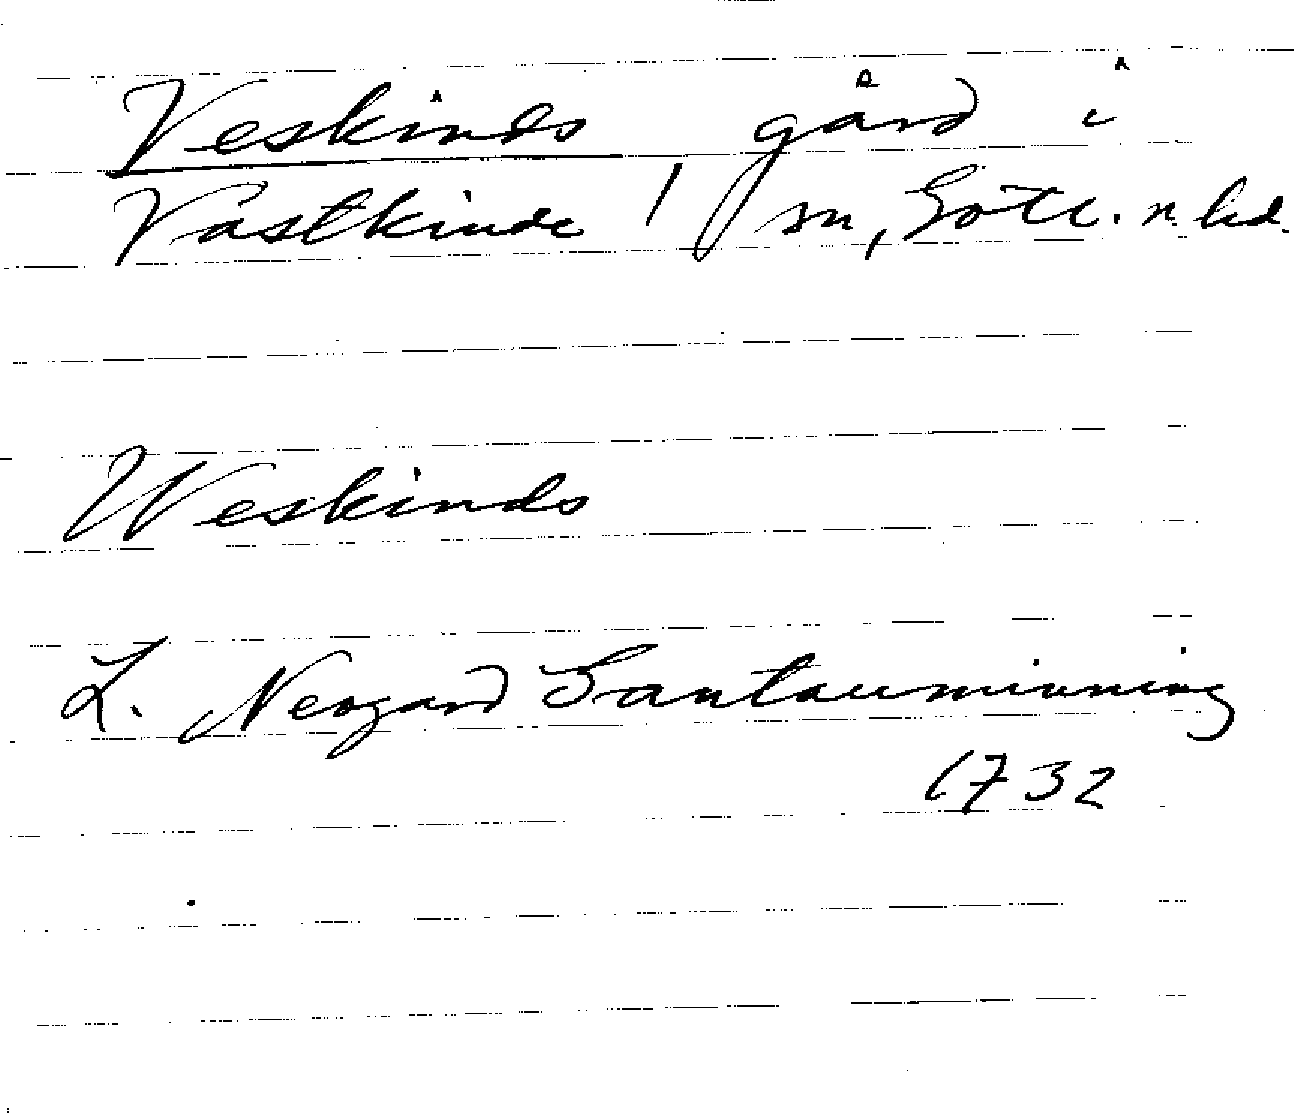 Veskinds gård i
Västkinde / sn, Gotl. n. hd.
Weskinds
L. Neogard Gautauminning
1732